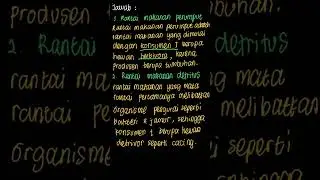 Jawab :
1. Rantai makanan perumput
Rantai makanan perumput adalah
rantai makanan yang dimulai
dengan konsumen I berupa
hewan herbivora, karena
produsen berupa tumbuhan.
2. Rantai makanan detritus
rantai makanan yang mata
rantai pertamanya melibatkan
organisme pengurai seperti
bakteri & jamur, sehingga
konsumen 1 berupa hewan
detrivor seperti cacing.
Produsen
2. Rantai
rantai
rantai pe
organisme